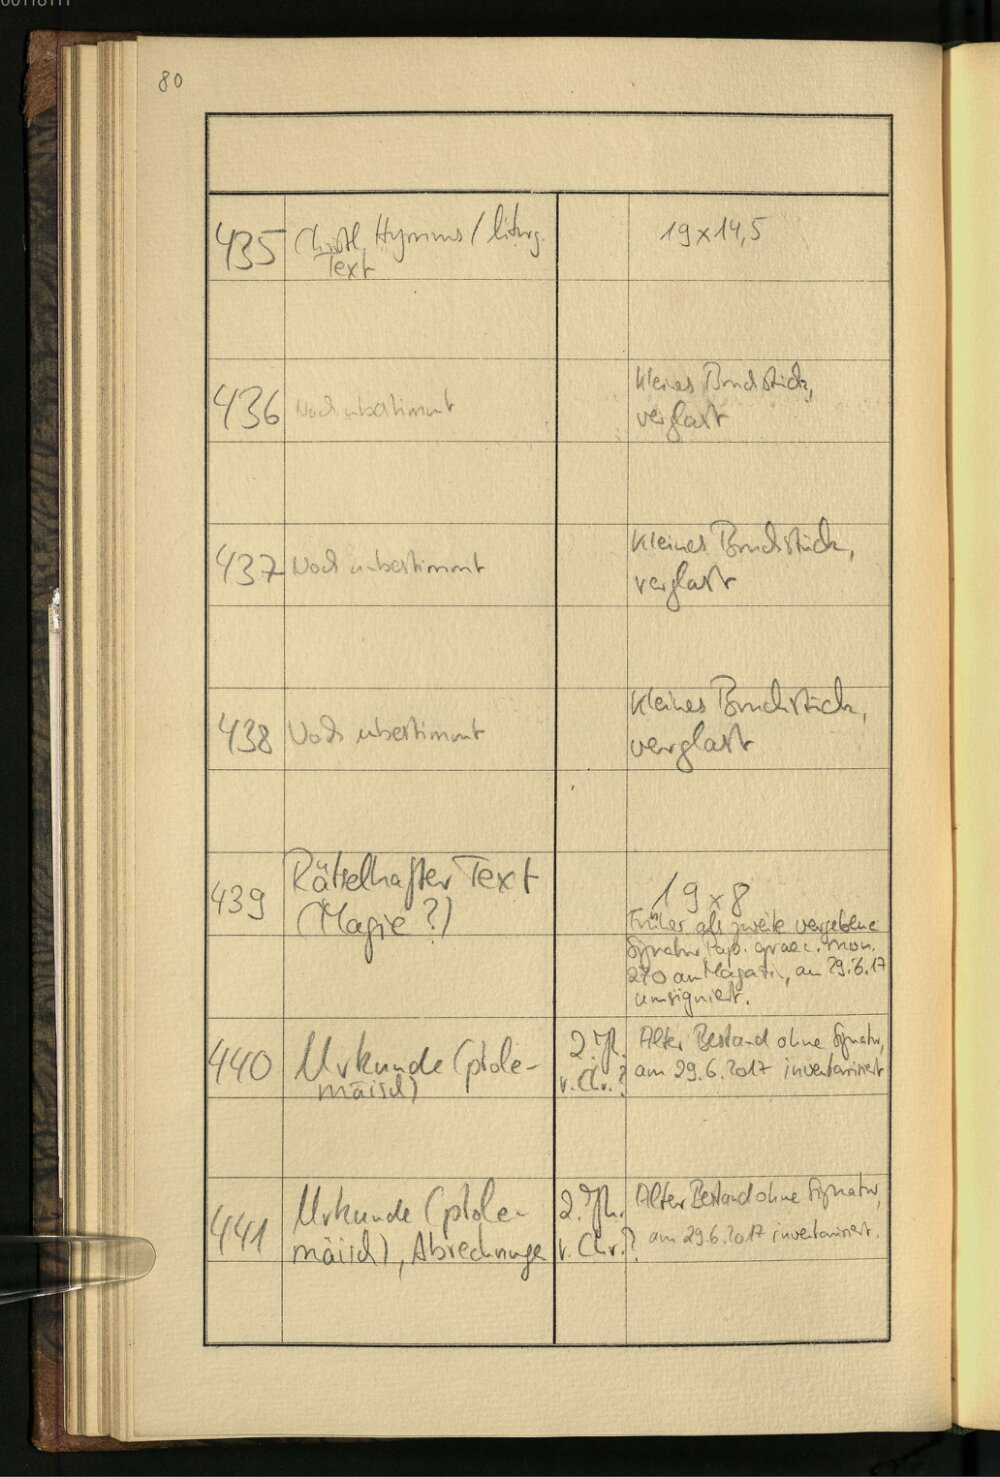 80
435 Christl. Hymnus / liturg. 19x14,5
Text
Kleines Bruchstück,
436 Noch unbestimmt verglast
Kleines Bruchstück,
437 Noch unbestimmt verglast
Kleines Bruchstück,
438 Noch unbestimmt verglast
Rätselhafter Text
439 (Magie ?) 19 x 8
Früher als zweite vergebene
Signatur Pap. graec. mon.
270 am Magazin, am 29.6.17
umsigniert.
440 Urkunde (ptole- 2. Jh. Alter Bestand ohne Signatur,
mäisch) v. Chr. ? am 29.6.2017 inventarisiert
441 Urkunde (ptole- 2. Jh. Alter Bestand ohne Signatur,
mäisch), Abrechnunge v. Chr. ? am 29.6.2017 inventarisiert.